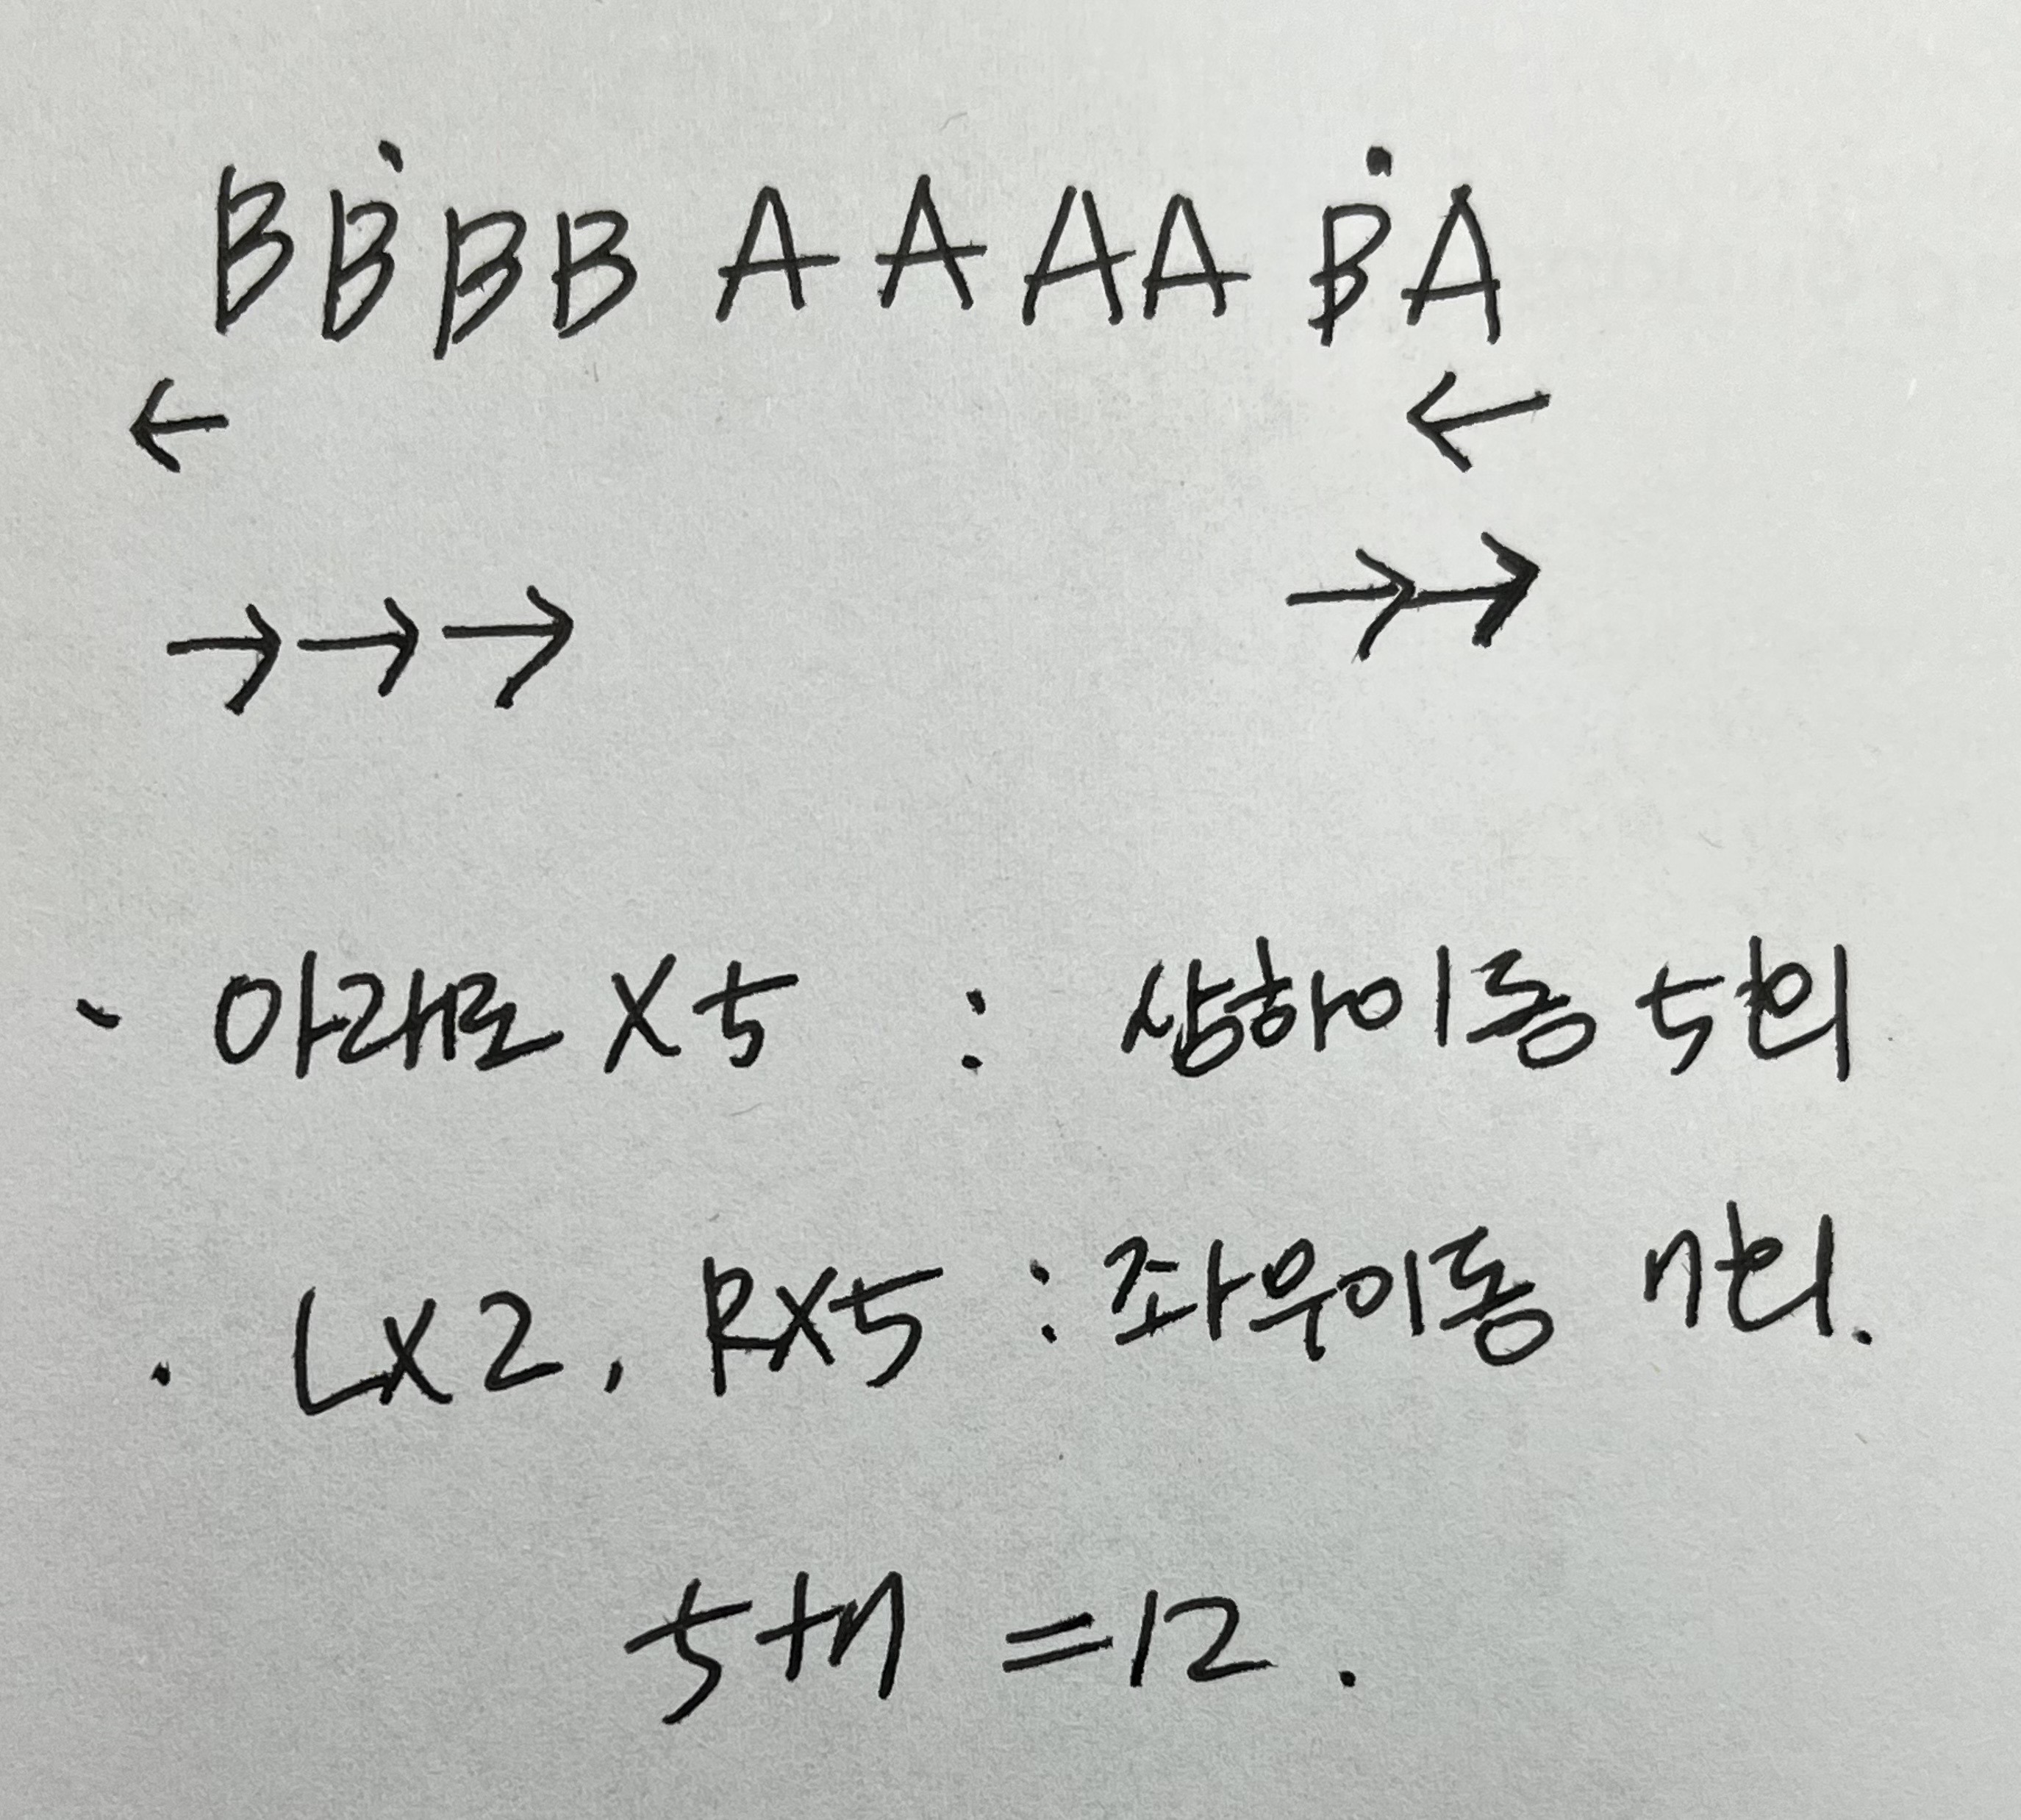 BBBB AAAA BA
← ←
→→→ →→
· 아래로 X 5 : 상하이동 5회
· LX2, RX5 : 좌우이동 7회.
5+7 = 12.